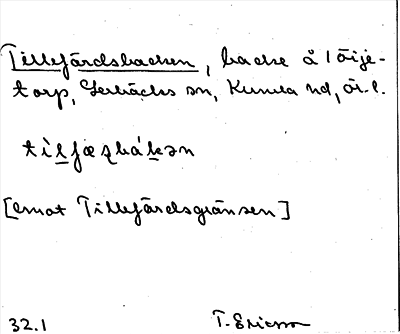 Tillefärdsbacken, backe å 1 Öije-
torp, Gerbäcks sn, Kumla hd, Ör. l.
tìlfæʂbákən
[emot Tillefärdsgränsen]
32.1 T. Ericsson